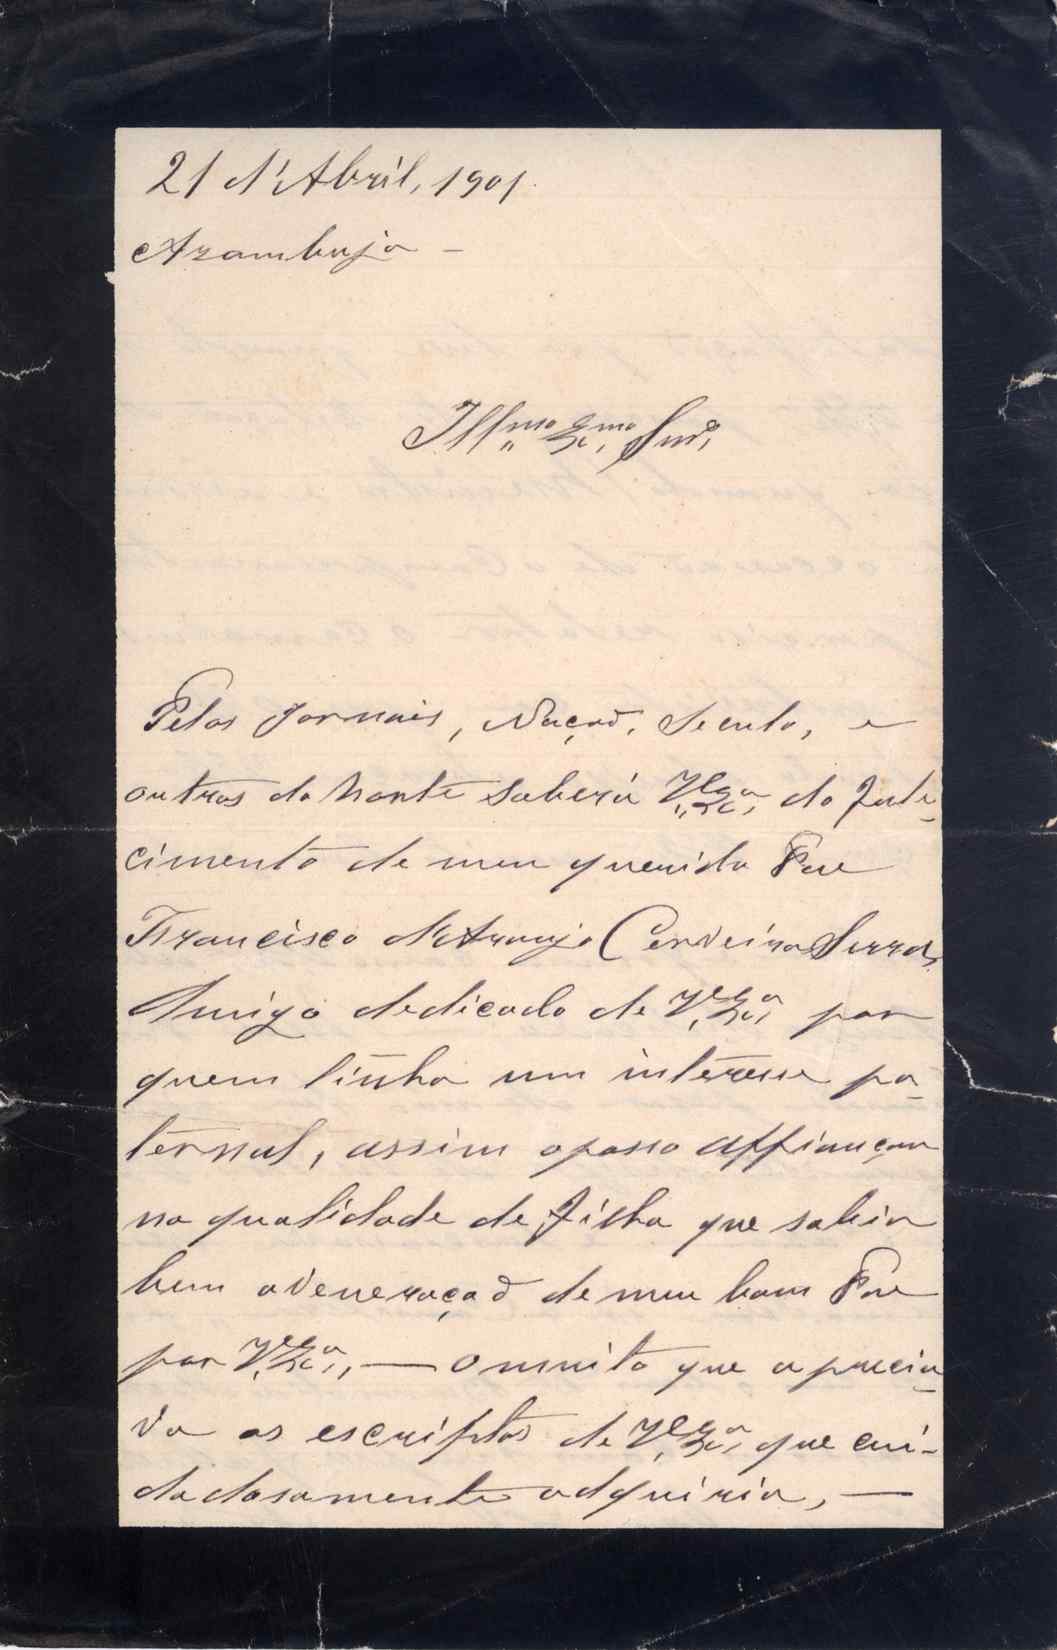 21 d'Abril, 1901.
Azambuja –
Illmo. Exmo. Snr.
Pelos Jornaes, Nação, Seculo, e
outros do Norte saberá V. Exa. do falle-
cimento de meu querido Pae
Francisco d'Araujo Cerveira Serra,
Amigo dedicado de V. Exa. por
quem tinha um interesse pa-
ternal, assim o posso affiançar
na qualidade de filha que sabia
bem a veneração de meu bom Pae
por V. Exa., — o muito que aprecia-
va os escriptos de V. Exa. que cui-
dadosamente adquiria, —